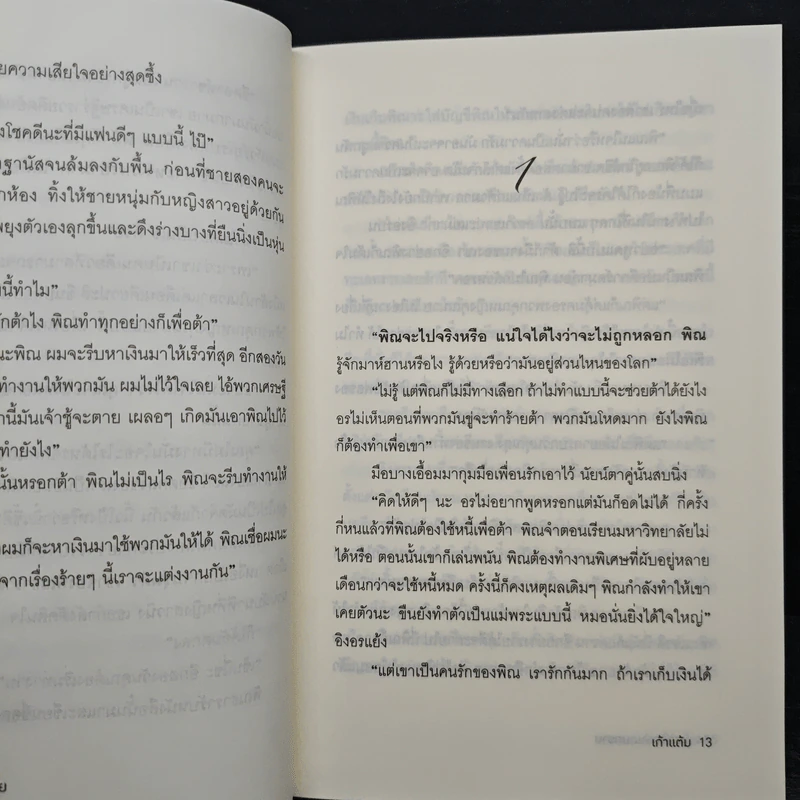 ยความเสียใจอย่างสุดซึ้ง
งโชคดีนะที่มีแฟนดีๆ แบบนี้ ไป๊”
ฐานัสจนล้มลงกับพื้น ก่อนที่ชายสองคนจะ
กห้อง ทิ้งให้ชายหนุ่มกับหญิงสาวอยู่ด้วยกัน
พยุงตัวเองลุกขึ้นและดึงร่างบางที่ยืนนิ่งเป็นหุ่น
นี้ทำไม”
ักต้าไง พิณทำทุกอย่างก็เพื่อต้า”
นะพิณ ผมจะรีบหาเงินมาให้เร็วที่สุด อีกสองวัน
ทำงานให้พวกมัน ผมไม่ไว้ใจเลย ไอ้พวกเศรษฐี
กนี้มันเจ้าชู้จะตาย เผลอๆ เกิดมันเอาพิณไปไว้
ทำยังไง”
นั้นหรอกต้า พิณไม่เป็นไร พิณจะรีบทำงานให้
ผมก็จะหาเงินมาใช้พวกมันให้ได้ พิณเชื่อผมนะ
จากเรื่องร้ายๆ นี้เราจะแต่งงานกัน”
ย
1
“พิณจะไปจริงหรือ แน่ใจได้ไงว่าจะไม่ถูกหลอก พิณ
รู้จักมาห์ฮานหรือไง รู้ด้วยหรือว่ามันอยู่ส่วนไหนของโลก”
“ไม่รู้ แต่พิณก็ไม่มีทางเลือก ถ้าไม่ทำแบบนี้จะช่วยต้าได้ยังไง
อรไม่เห็นตอนที่พวกมันขู่จะทำร้ายต้า พวกมันโหดมาก ยังไงพิณ
ก็ต้องทำเพื่อเขา”
มือบางเอื้อมมากุมมือเพื่อนรักเอาไว้ นัยน์ตาคู่นั้นสบนิ่ง
“คิดให้ดีๆ นะ อรไม่อยากพูดหรอกแต่มันก็อดไม่ได้ กี่ครั้ง
กี่หนแล้วที่พิณต้องใช้หนี้เพื่อต้า พิณจำตอนเรียนมหาวิทยาลัยไม่
ได้หรือ ตอนนั้นเขาก็เล่นพนัน พิณต้องทำงานพิเศษที่ผับอยู่หลาย
เดือนกว่าจะใช้หนี้หมด ครั้งนี้ก็คงเหตุผลเดิมๆ พิณกำลังทำให้เขา
เคยตัวนะ ขืนยังทำตัวเป็นแม่พระแบบนี้ หมอนั่นยิ่งได้ใจใหญ่”
อิงอรแย้ง
“แต่เขาเป็นคนรักของพิณ เรารักกันมาก ถ้าเราเก็บเงินได้
เก้าแต้ม 13